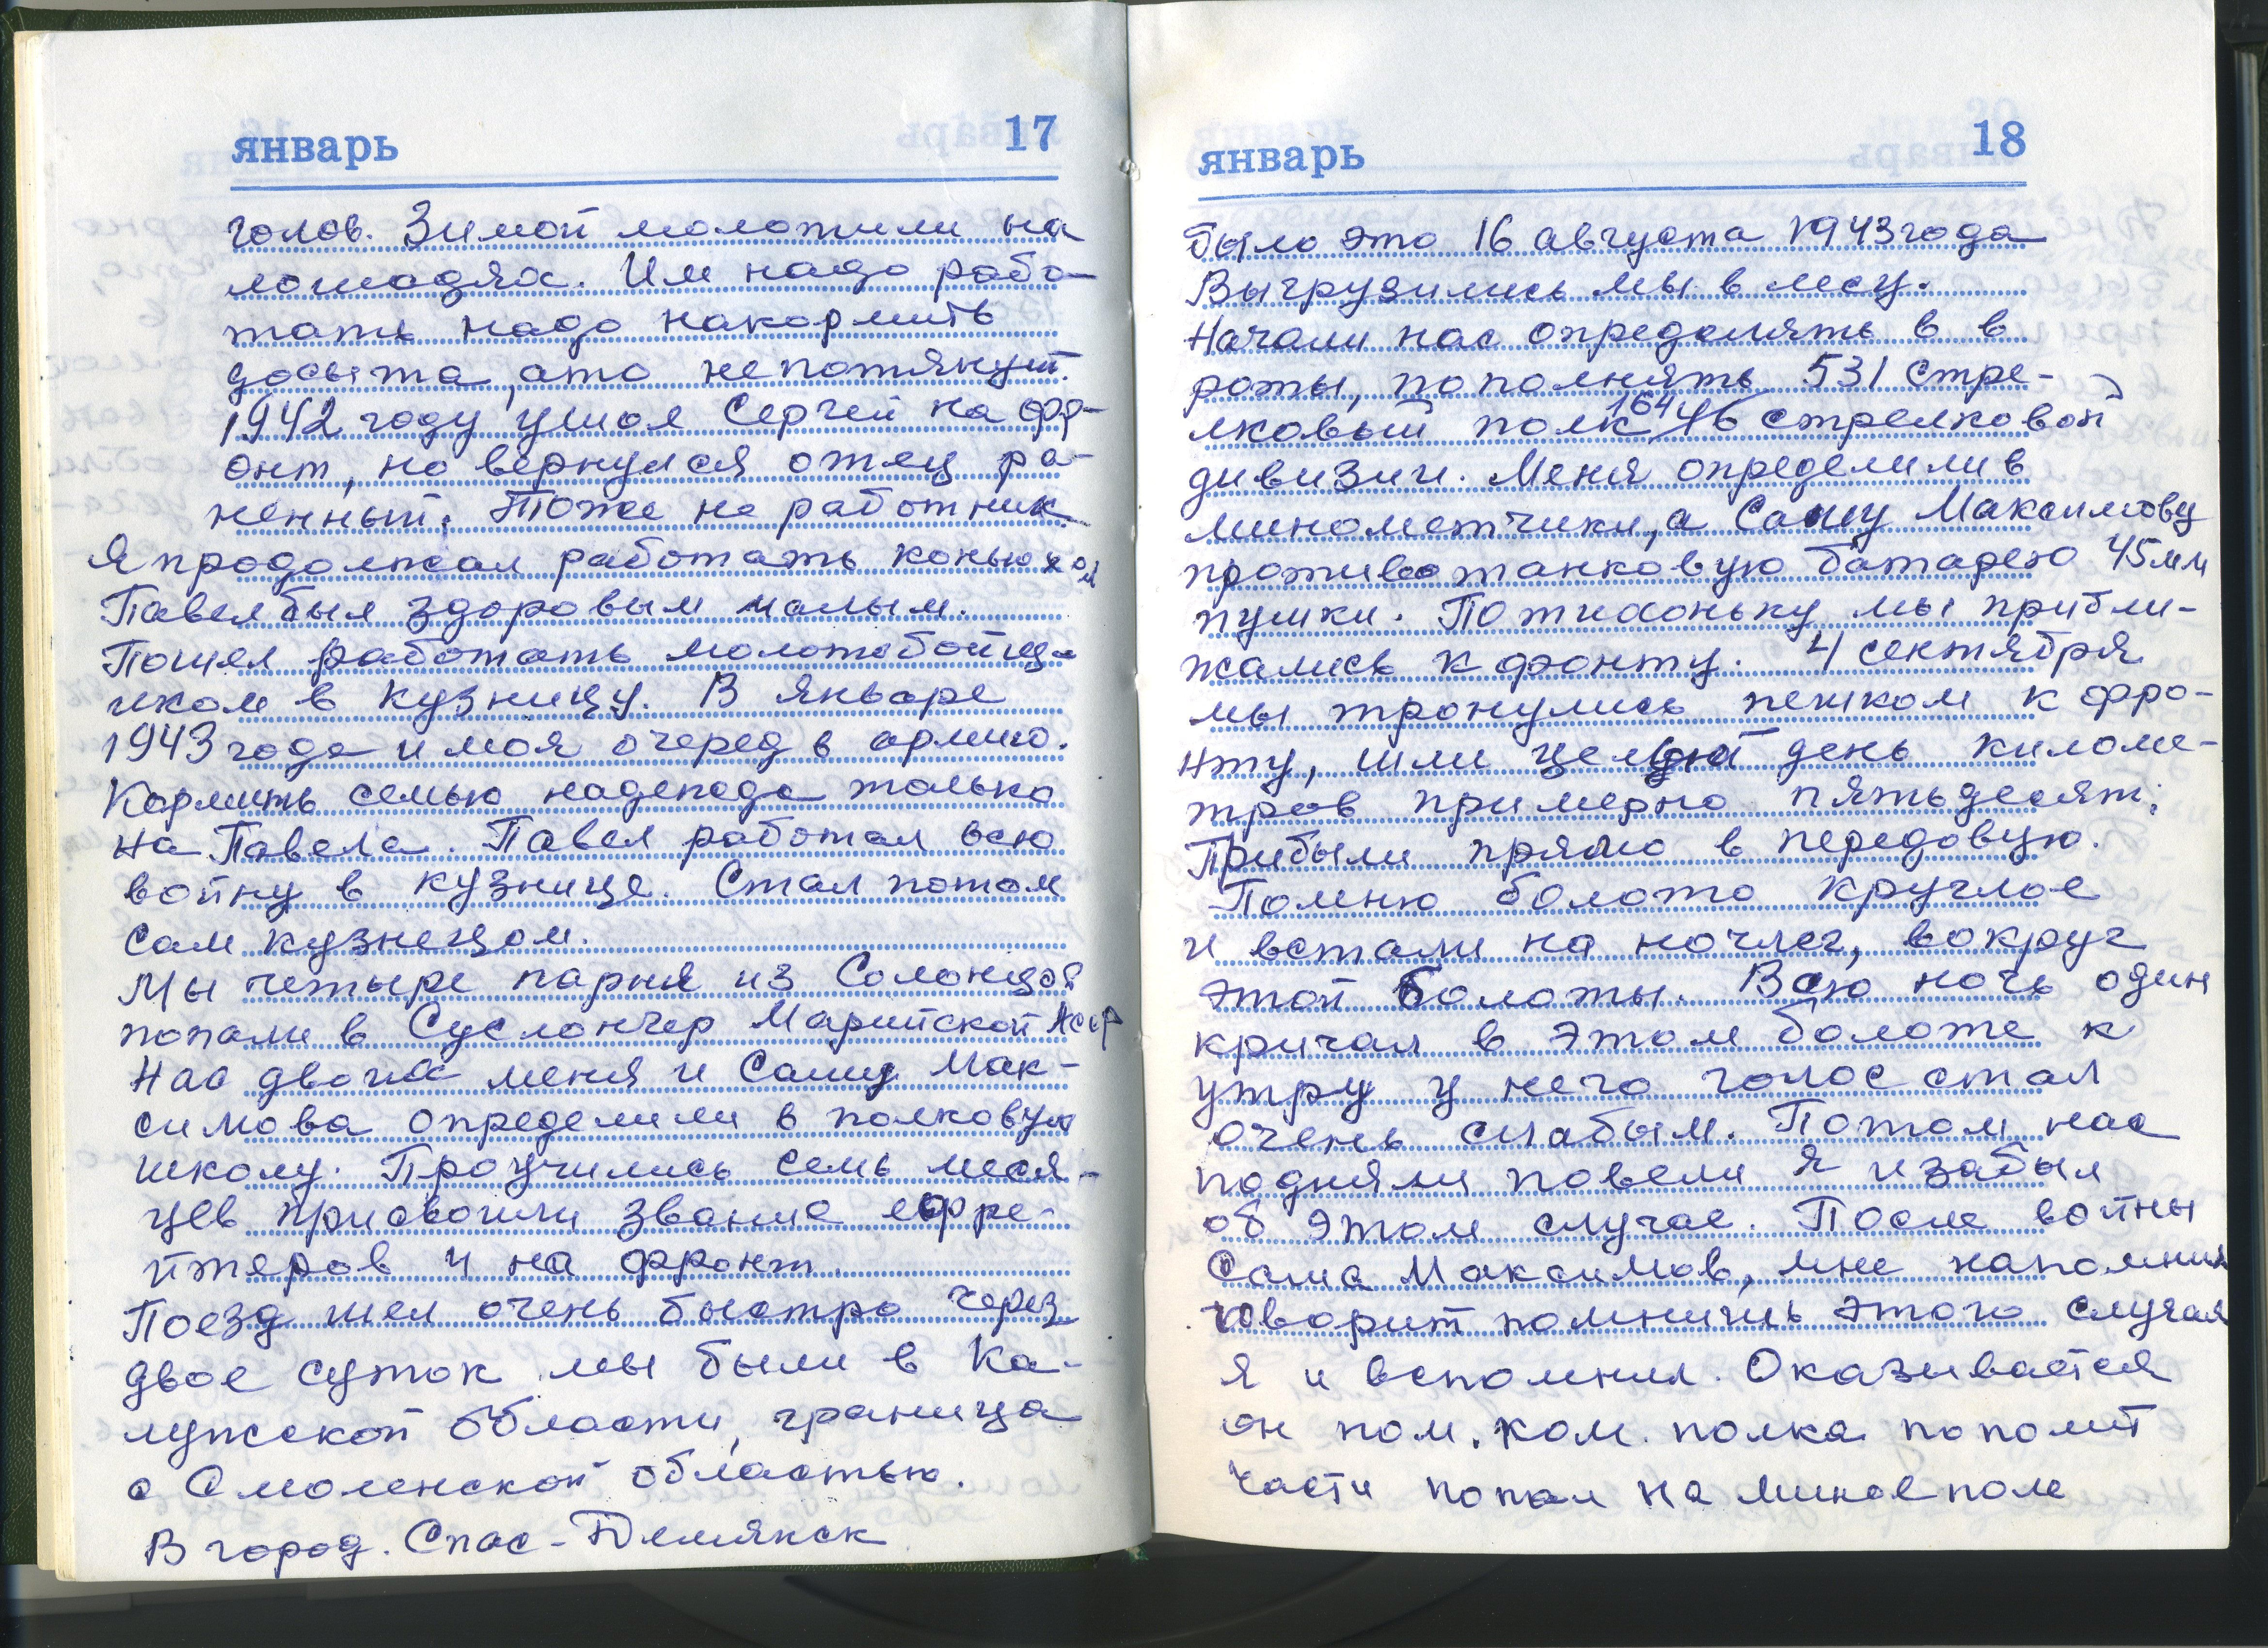 январь 17
голов. Зимой молотили на
лошадях. Им надо рабо-
тать надо накормить
досыта, ато непотянут.
1942 году ушол Сергей на фр-
онт, но вернулся отец ра-
ненный. Тоже не работник.
Я продолжал работать конюхом
Павел был здоровым малым.
Пошел работать молотобойце-
иком в кузницу. В январе
1943 года и моя очеред в армию.
Кормить семью надежда только
на Павела. Павел работал всю
войну в кузнице. Стал потом
сам кузнецом.
Мы четыре парня из Солонцов
попали в Суслончер Марийской АССР
Нас двоих меня и Сашу Мак-
симова определили в полковую
школу. Проучились семь меся-
цев присвоили звание ефре-
йтеров и на фронт.
Поезд шел очень быстро через
двое суток мы были в Ка-
лужской области, граница
с Смоленской областью.
В город. Спас-Демянск
январь 18
было это 16 августа 1943 года
Выгрузились мы в лесу.
Начали нас определять в в
роты, пополнять 531 стре-
лковый полк 164 стрелковой
дивизии. Меня определили в
минометчики, а Сашу Максимову
противотанковую батарею 45мм
пушки. Потихоньку мы прибли-
жались к фронту. 4 сентября
мы тронулись пешком к фро-
нту, шли целый день киломе-
тров примерно пятьдесят;
Прибыли прямо в передовую.
Помню болото круглое
и встали на ночлег, вокруг
этой болоты. Всю ночь один
кричал в этом болоте к
утру у него голос стал
очень слабым. Потом нас
подняли повели я и забыл
об этом случае. После войны
Саша Максимов, мне напомнил
говорит помнишь этого случая
я и вспомнил. Оказывается
он пом. ком. полка по полит
части попал на миное поле